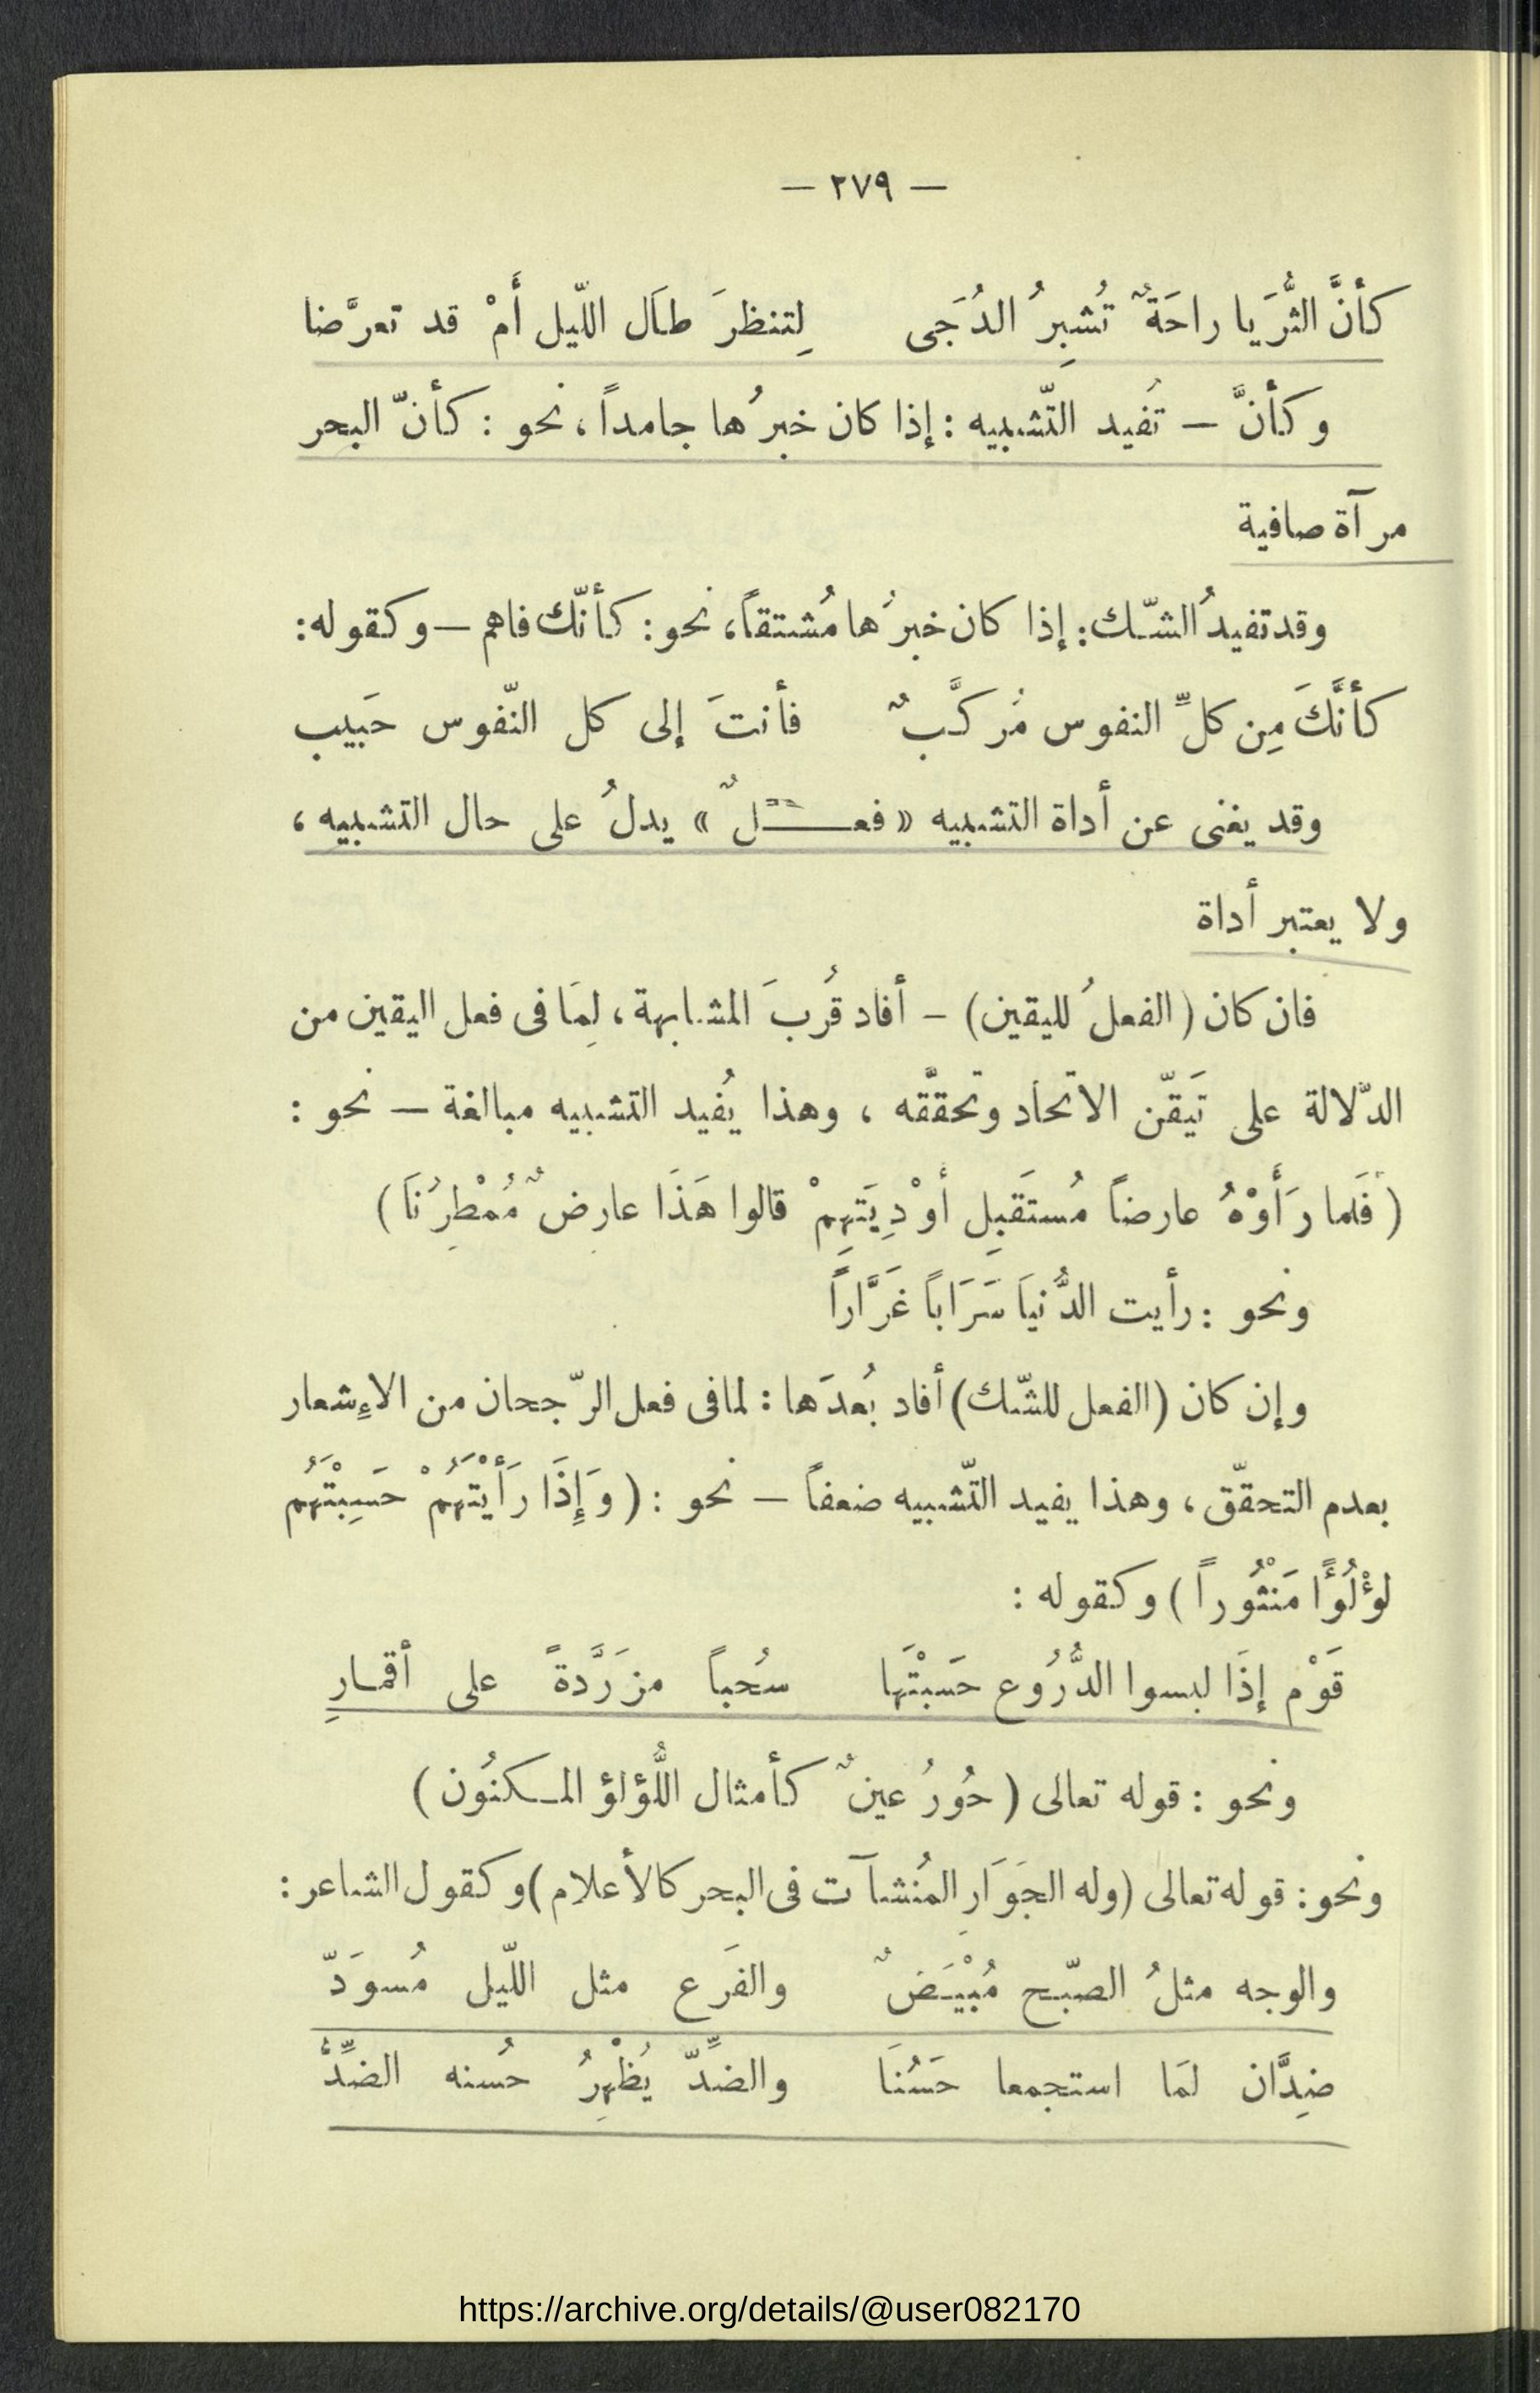 — ٢٧٩ —
كأنَّ الثُّرَيا راحَةٌ تُشبِرُ الدُجَى لِتنظرَ طَال اللّيل أَمْ قد تعرَّضا
وكأنَّ — تُفيد التّشبيه : إذا كان خبرُها جامداً ، نحو : كأنّ البحر
مرآة صافية
وقد تفيدُ الشّك : إذا كان خبرُها مُشتقاً ، نحو : كأنّك فاهم — وكقوله :
كأنَّكَ مِن كلِّ النفوس مُركَّبٌ فأنتَ إلى كل النّفوس حَبيب
وقد يغنى عن أداة التشبيه « فعــلٌ » يدلُ على حال التشبيه ،
ولا يعتبر أداة
فان كان ( الفعلُ لليقين ) — أفاد قُربَ المشابهة ، لِمَا فى فعل اليقين من
الدّلالة على تَيقّن الاتحاد وتحققّه ، وهذا يُفيد التشبيه مبالغة — نحو :
( فَلما رَأَوْهُ عارضاً مُستَقبِل أوْدِيَتِهِمْ قالوا هَذَا عارِضٌ مُمْطِرُنَا )
ونحو : رأيت الدُّنيَا سَرَاباً غَرَّاراً
وإن كان ( الفعل للشّك ) أفاد بُعدَها : لما فى فعل الرّجحان من الاءِشعار
بعدم التحقّق ، وهذا يفيد التّشبيه ضعفاً — نحو : ( وَإِذَا رَأَيْتَهُمْ حَسِبْتَهُم
لؤْلُؤًا مَنْثُوراً ) وكقوله :
قَوْم إذَا لبسوا الدُّرُوع حَسبْتَها سُحباً مزَرَّدةً على أقمـارِ
ونحو : قوله تعالى ( حُورُ عينٌ كأمثال اللُّؤلؤ المـكنُون )
ونحو : قوله تعالى ( وله الجَوَارِ المُنشآت فى البحر كالأعلام ) وكقول الشاعر :
والوجه مثلُ الصبّح مُبْيَضٌ والفَرع مثل اللّيل مُسوَدّ
ضِدَّان لمَا استجمعا حَسُنَا والضِدّ يُظْهِرُ حُسنه الضِدُّ
https://archive.org/details/@user082170